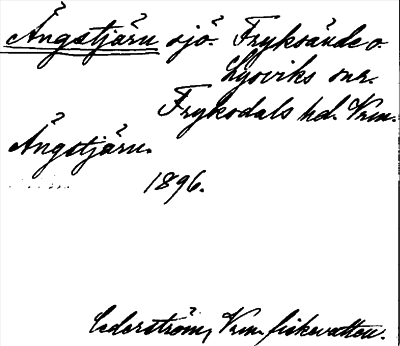 Ängstjärn sjö. Fryksände o.
Lysviks snr.
Frykdals hd. Vrm.
Ängstjärn.
1896.
Cederström, Vrm. fiskevatten.